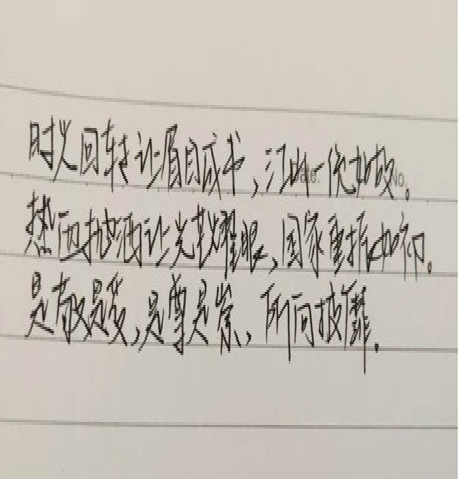 时光回转让眉目成书,江山一依如故。
热血挥洒让光影耀眼,国家重振如初。
是敬是爱,是尊是崇,所向披靡.